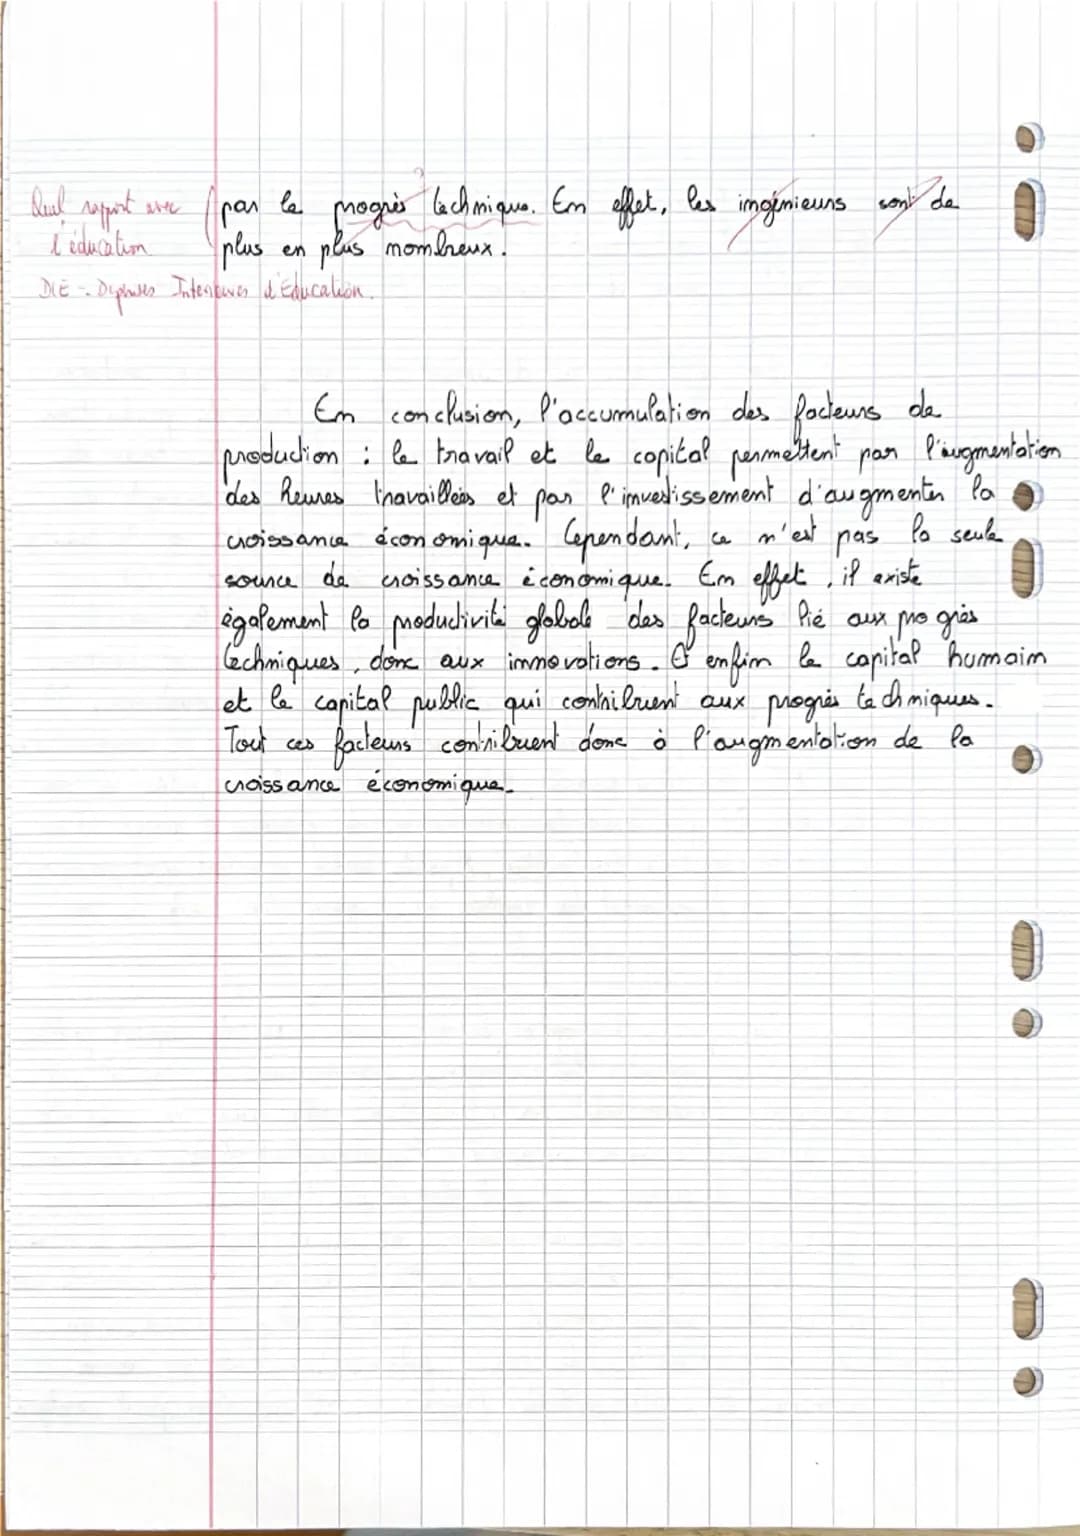 Quel rapport avec
l'éducation
DIE = Dépenses Intérieures d'Éducation.
?
par le progrès technique. En effet, les ingénieurs sont de
plus en plus nombreux.
En conclusion, l'accumulation des facteurs de
production : le travail et le capital permettent par l'augmentation
des heures travaillées et par l'investissement d'augmenter la
croissance économique. Cependant, ce n'est pas la seule
source de croissance économique. En effet, il existe
également la productivité globale des facteurs lié aux progrès
techniques, donc aux innovations. Et enfin le capital humain
et le capital public qui contribuent aux progrès techniques.
Tout ces facteurs contribuent donc à l'augmentation de la
croissance économique.